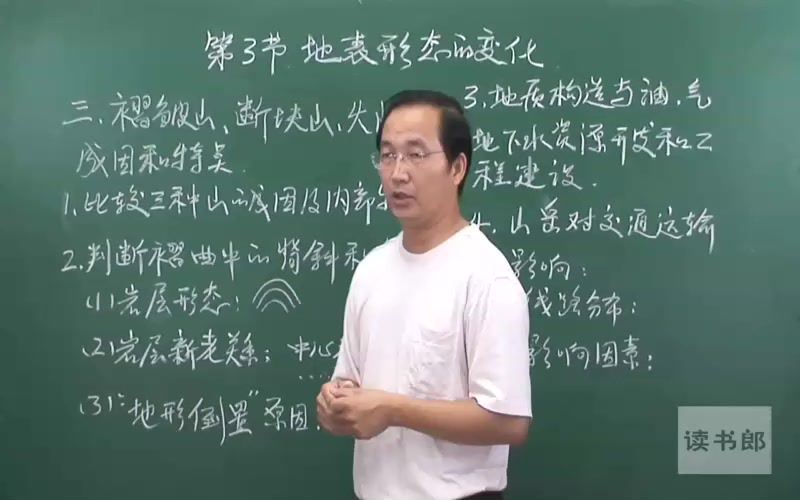 第3节 地表形态的变化
三、褶皱山、断块山、火山
成因和特点.
1.比较三种山的成因及内部
2.判断褶曲中的背斜和
(1)岩层形态:
(2)岩层新老关系; 中心
(3)"地形倒置"原因:
3.地质构造与油、气
地下水资源开发和工
程建设.
4.山岳对交通运输
影响:
线路分布:
影响因素:
读书郎